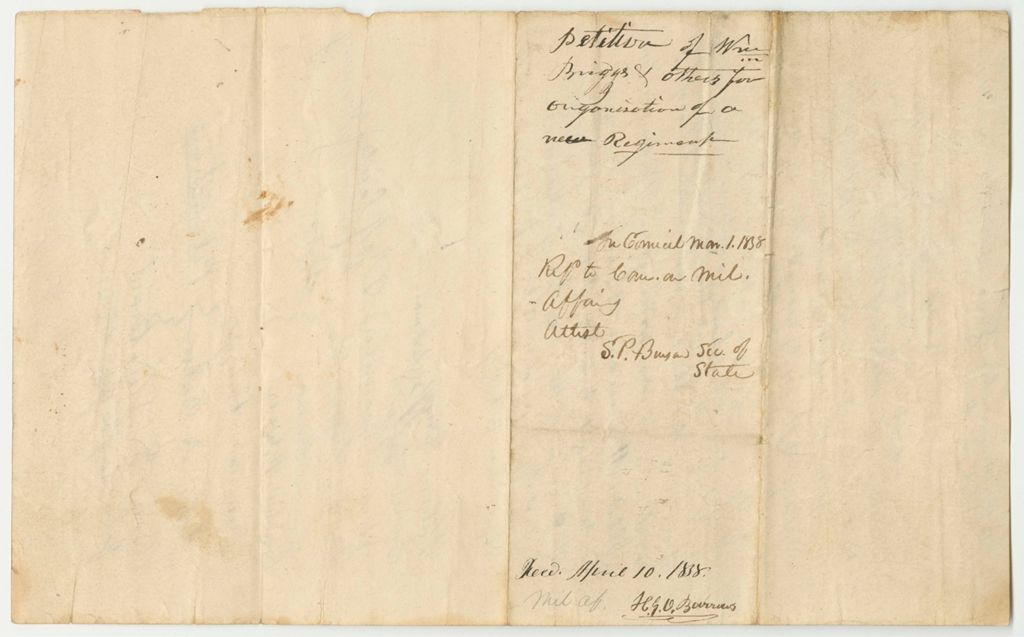 Petition of Wm
Briggs & others for
organisation of a
new Regiment
In Council Mar. 1. 1838
Refd to Com. on Mil.
Affairs
Attest
S. P. Benson Sec. of
State
Recd. April 10. 1838.
Mil af. H. G. O. Barrows